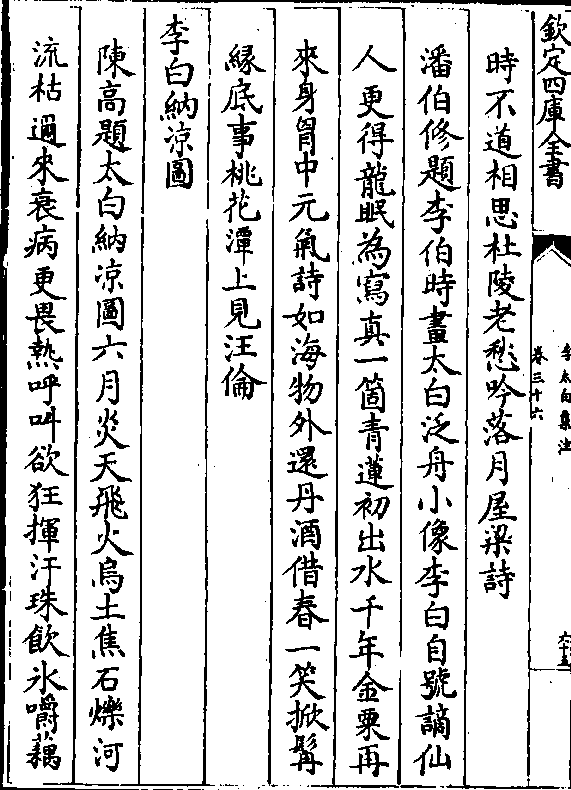 欽定四庫全書
李太白集注
卷三十六
六十五
時不道相思杜陵老愁吟落月屋梁詩
潘伯修題李伯時畫太白泛舟小像李白自號謫仙
人更得龍眠為寫真一箇青蓮初出水千年金粟再
來身胷中元氣詩如海物外還丹酒借春一笑掀髯
緣底事桃花潭上見汪倫
李白納凉圖
陳高題太白納凉圖六月炎天飛火烏土焦石爍河
流枯邇來衰病更畏熱呼叫欲狂揮汗珠飲冰嚼藕